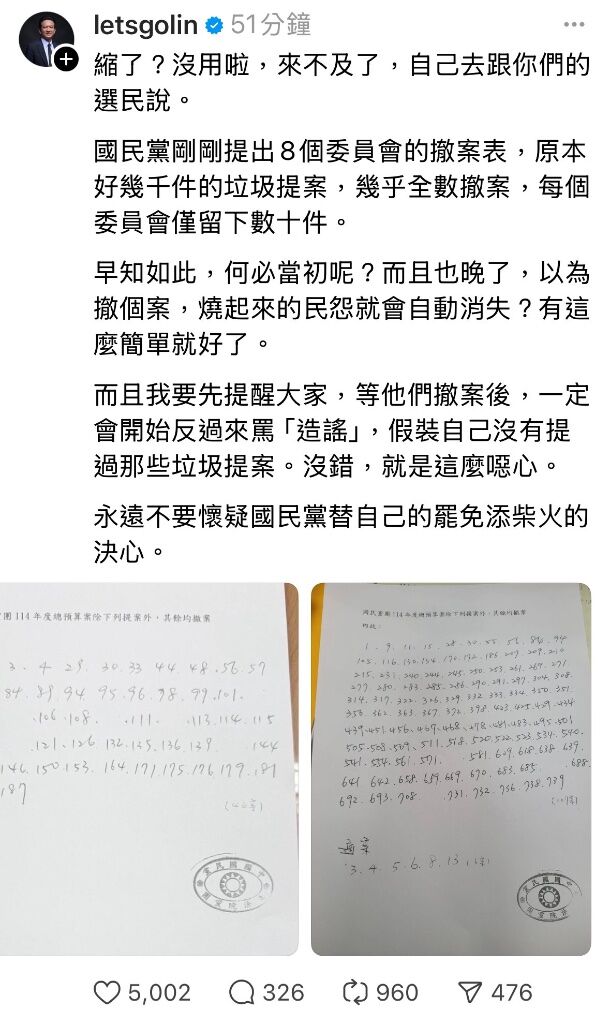 letsgolin 51分鐘
縮了？沒用啦，來不及了，自己去跟你們的
選民說。
國民黨剛剛提出8個委員會的撤案表，原本
好幾千件的垃圾提案，幾乎全數撤案，每個
委員會僅留下數十件。
早知如此，何必當初呢？而且也晚了，以為
撤個案，燒起來的民怨就會自動消失？有這
麼簡單就好了。
而且我要先提醒大家，等他們撤案後，一定
會開始反過來罵「造謠」，假裝自己沒有提
過那些垃圾提案。沒錯，就是這麼噁心。
永遠不要懷疑國民黨替自己的罷免添柴火的
決心。
團 114 年度總預算案除下列提案外，其餘均撤案
3. 4 29. 30. 33 44. 48. 56. 57
84. 89. 94 95. 96. 98. 99. 101.
106. 108. .111. .113. 114. 115
.121. 126 132. 135. 136. 139. 144
146. 150. 153. 164. 171. 175. 176. 179. 181
187
國民黨團 114 年度總預算案除下列提案外，其餘均撤案
1. 9. 11. 15.
105. 116. 130. 154. 170. 172. 186. 207. 209. 210
215. 231. 240. 244. 245. 250. 253. 261. 267. 271.
277. 280. 283. 285. 286. 290. 291. 297. 304. 308.
314. 317. 322. 326. 329. 332. 333. 334. 350. 351.
356. 362. 363. 367. 372. 398. 423. 425. 429. 434
439. 451. 456. 467. 468. 478. 481. 483. 495. 501
505. 508. 509. 511. 518. 520. 522. 523. 534. 540.
541. 554. 561. 571. 581. 629. 618. 638 639.
641 642. 658. 659. 669. 670. 683. 685. .688.
692. 693. 708. .731. 732. 736. 738. 739
3. 4. 5. 6. 8. 13
5,002 326 960 476